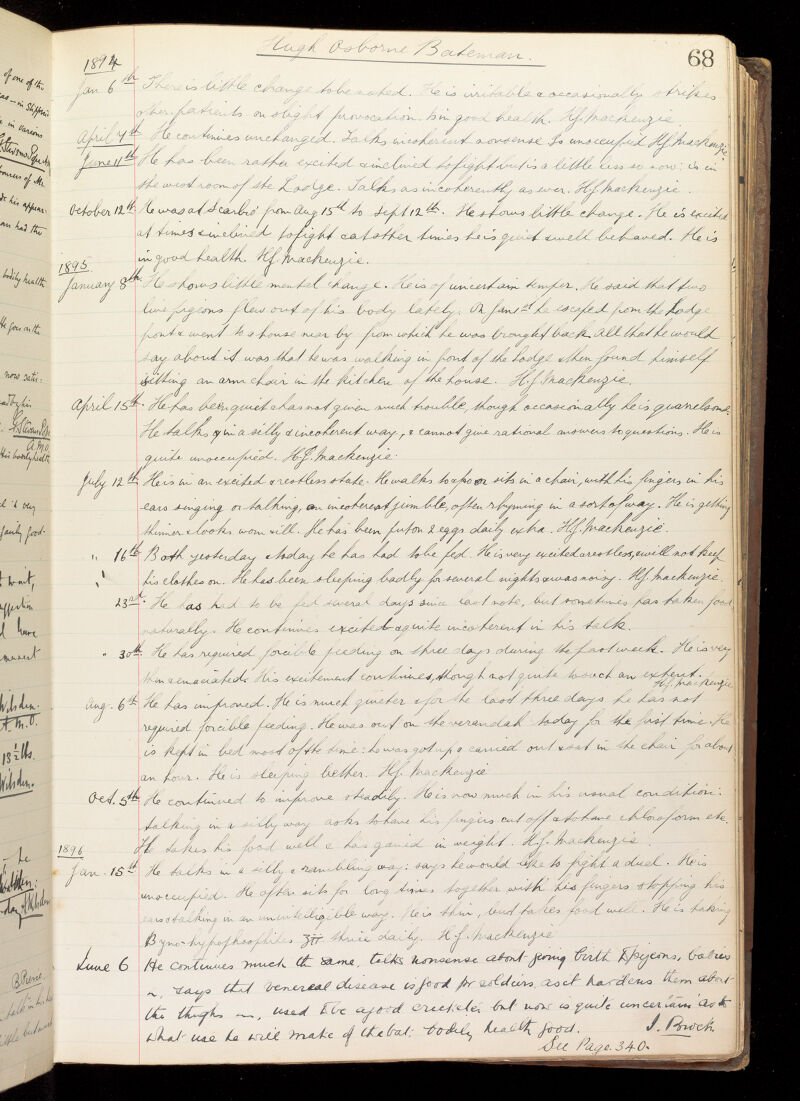 of one of the
in various
bodily health
He goes on the
now
A.M.O.
fairly good
have
13½ lbs.
68
Hugh Osborne Bateman.
1894
Jan 6th There is little change to be noted. He is irritable & occasionally strikes
other patients on slight provocation. Is in good health. H.J. Mackenzie.
April 4th He continues unchanged. Talks incoherent nonsense. Is unoccupied H.J. Mackenzie
June 11th He has been rather excited & inclined to fight but is a little less so now: is in
the west room of the Lodge. Talks as incoherently as ever. H.J. Mackenzie.
October 12th He was at Scarbro' from Aug 15th to Sept 12th. He shows little change. He is excited
at times & inclined to fight & at other times he is quiet & well behaved. He is
in good health. H.J. Mackenzie.
1895
January 8th He shows little mental change. He is of uncertain temper. He said that two
live pigeons flew out of his body lately. On Jan 1st he escaped from the Lodge
front & went to a house near by from which he was brought back. All that he would
say about it was that he was walking in front of the Lodge & then found himself
sitting an arm chair in the kitchen of the house. H.J. Mackenzie.
April 15th He has been quiet & has not given much trouble, though occasionally he is quarrelsome.
He talks in a silly & incoherent way, & cannot give rational answers to questions. He is
quite unoccupied. H.J. Mackenzie.
July 12th He is in an excited & restless state. He walks to & fro or sits in a chair, with his fingers in his
ears singing or talking, an incoherent jumble, often rhyming in a sort of way. He is getting
thinner & looks worn & ill. He has been put on 2 eggs daily extra. H.J. Mackenzie.
" 16th Both yesterday & today he has had to be fed. He is very excited & restless, & will not keep
his clothes on. He has been sleeping badly for several nights & was noisy. H.J. Mackenzie.
" 23rd. He has had to be fed several days since last note, but sometimes has taken food
naturally. He continues excited & quite incoherent in his talk.
" 30th He has required forcible feeding on three days during the past week. He is very
thin & emaciated. His excitement continues, though not quite to such an extent.
H.J. Mackenzie
Aug. 6th He has improved. He is much quieter & for the last three days he has not
required forcible feeding. He was out on the verandah today for the first time. He
is kept in bed most of the time: & was got up & carried out & sat in the chair for about
an hour. He is sleeping better. H.J. Mackenzie
Oct. 5th He continued to improve steadily. He is now much in his usual condition:
talking in a silly way asks to have his fingers cut off & to have chloroform etc.
He takes his food well & has gained in weight. H.J. Mackenzie.
1896
Jan. 15th He talks in a silly & rambling way: says he would like to fight a duel. He is
unoccupied. He often sits for long times together with his fingers stopping his
ears & talking in an unintelligible way. He is thin, but takes food well. He is taking
Byno-hypophosphites ʒii thrice daily. H.J. Mackenzie
June 6 He continues much the same, talks nonsense about giving birth to pigeons, babies
says that venereal disease is good for soldiers, as it hardens them about
the thighs used to be a good cricketer but now is quite uncertain as to
what use he will make of the bat: bodily health good. J. Brock
See Page. 340.